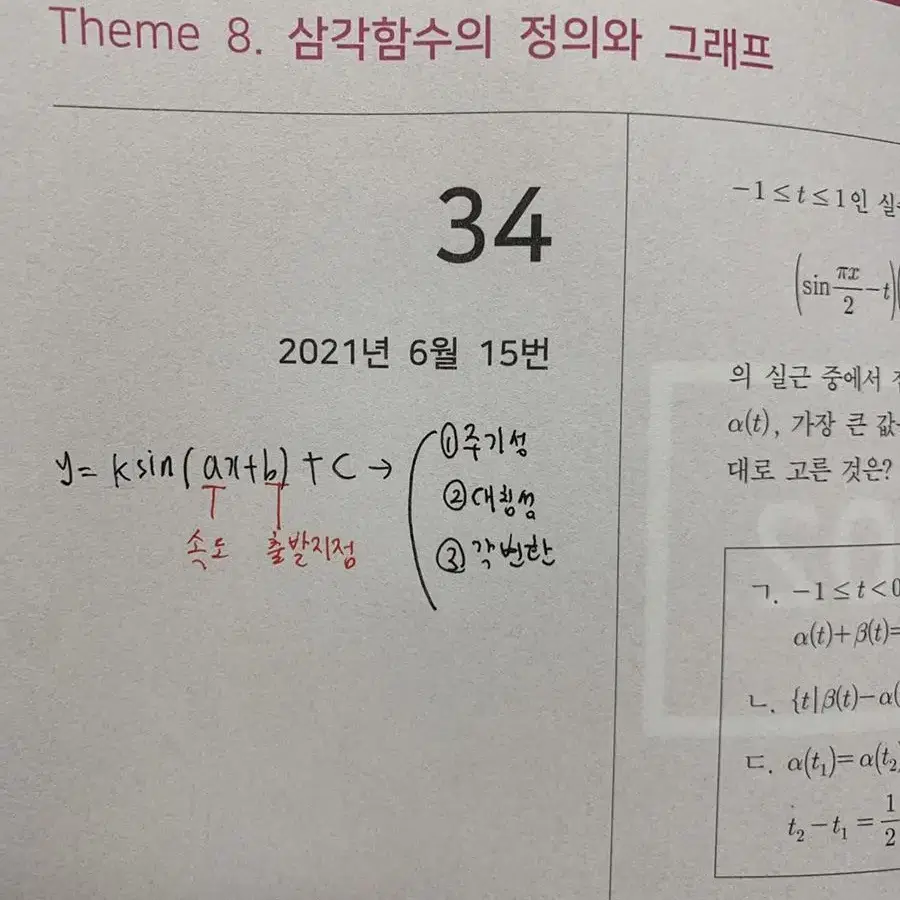 Theme 8. 삼각함수의 정의와 그래프
34
2021년 6월 15번
y = k sin(ax+b)+c →
속도 출발지점
①주기성
②대칭성
③각변환
-1≤t≤1인
(sin πx/2 -t)(
의 실근 중에서
α(t), 가장 큰 값
대로 고른 것은?
ㄱ. -1≤t<0
α(t)+β(t)=
ㄴ. {t|β(t)-α(
ㄷ. α(t₁)=α(t₂)
t₂-t₁=1/2